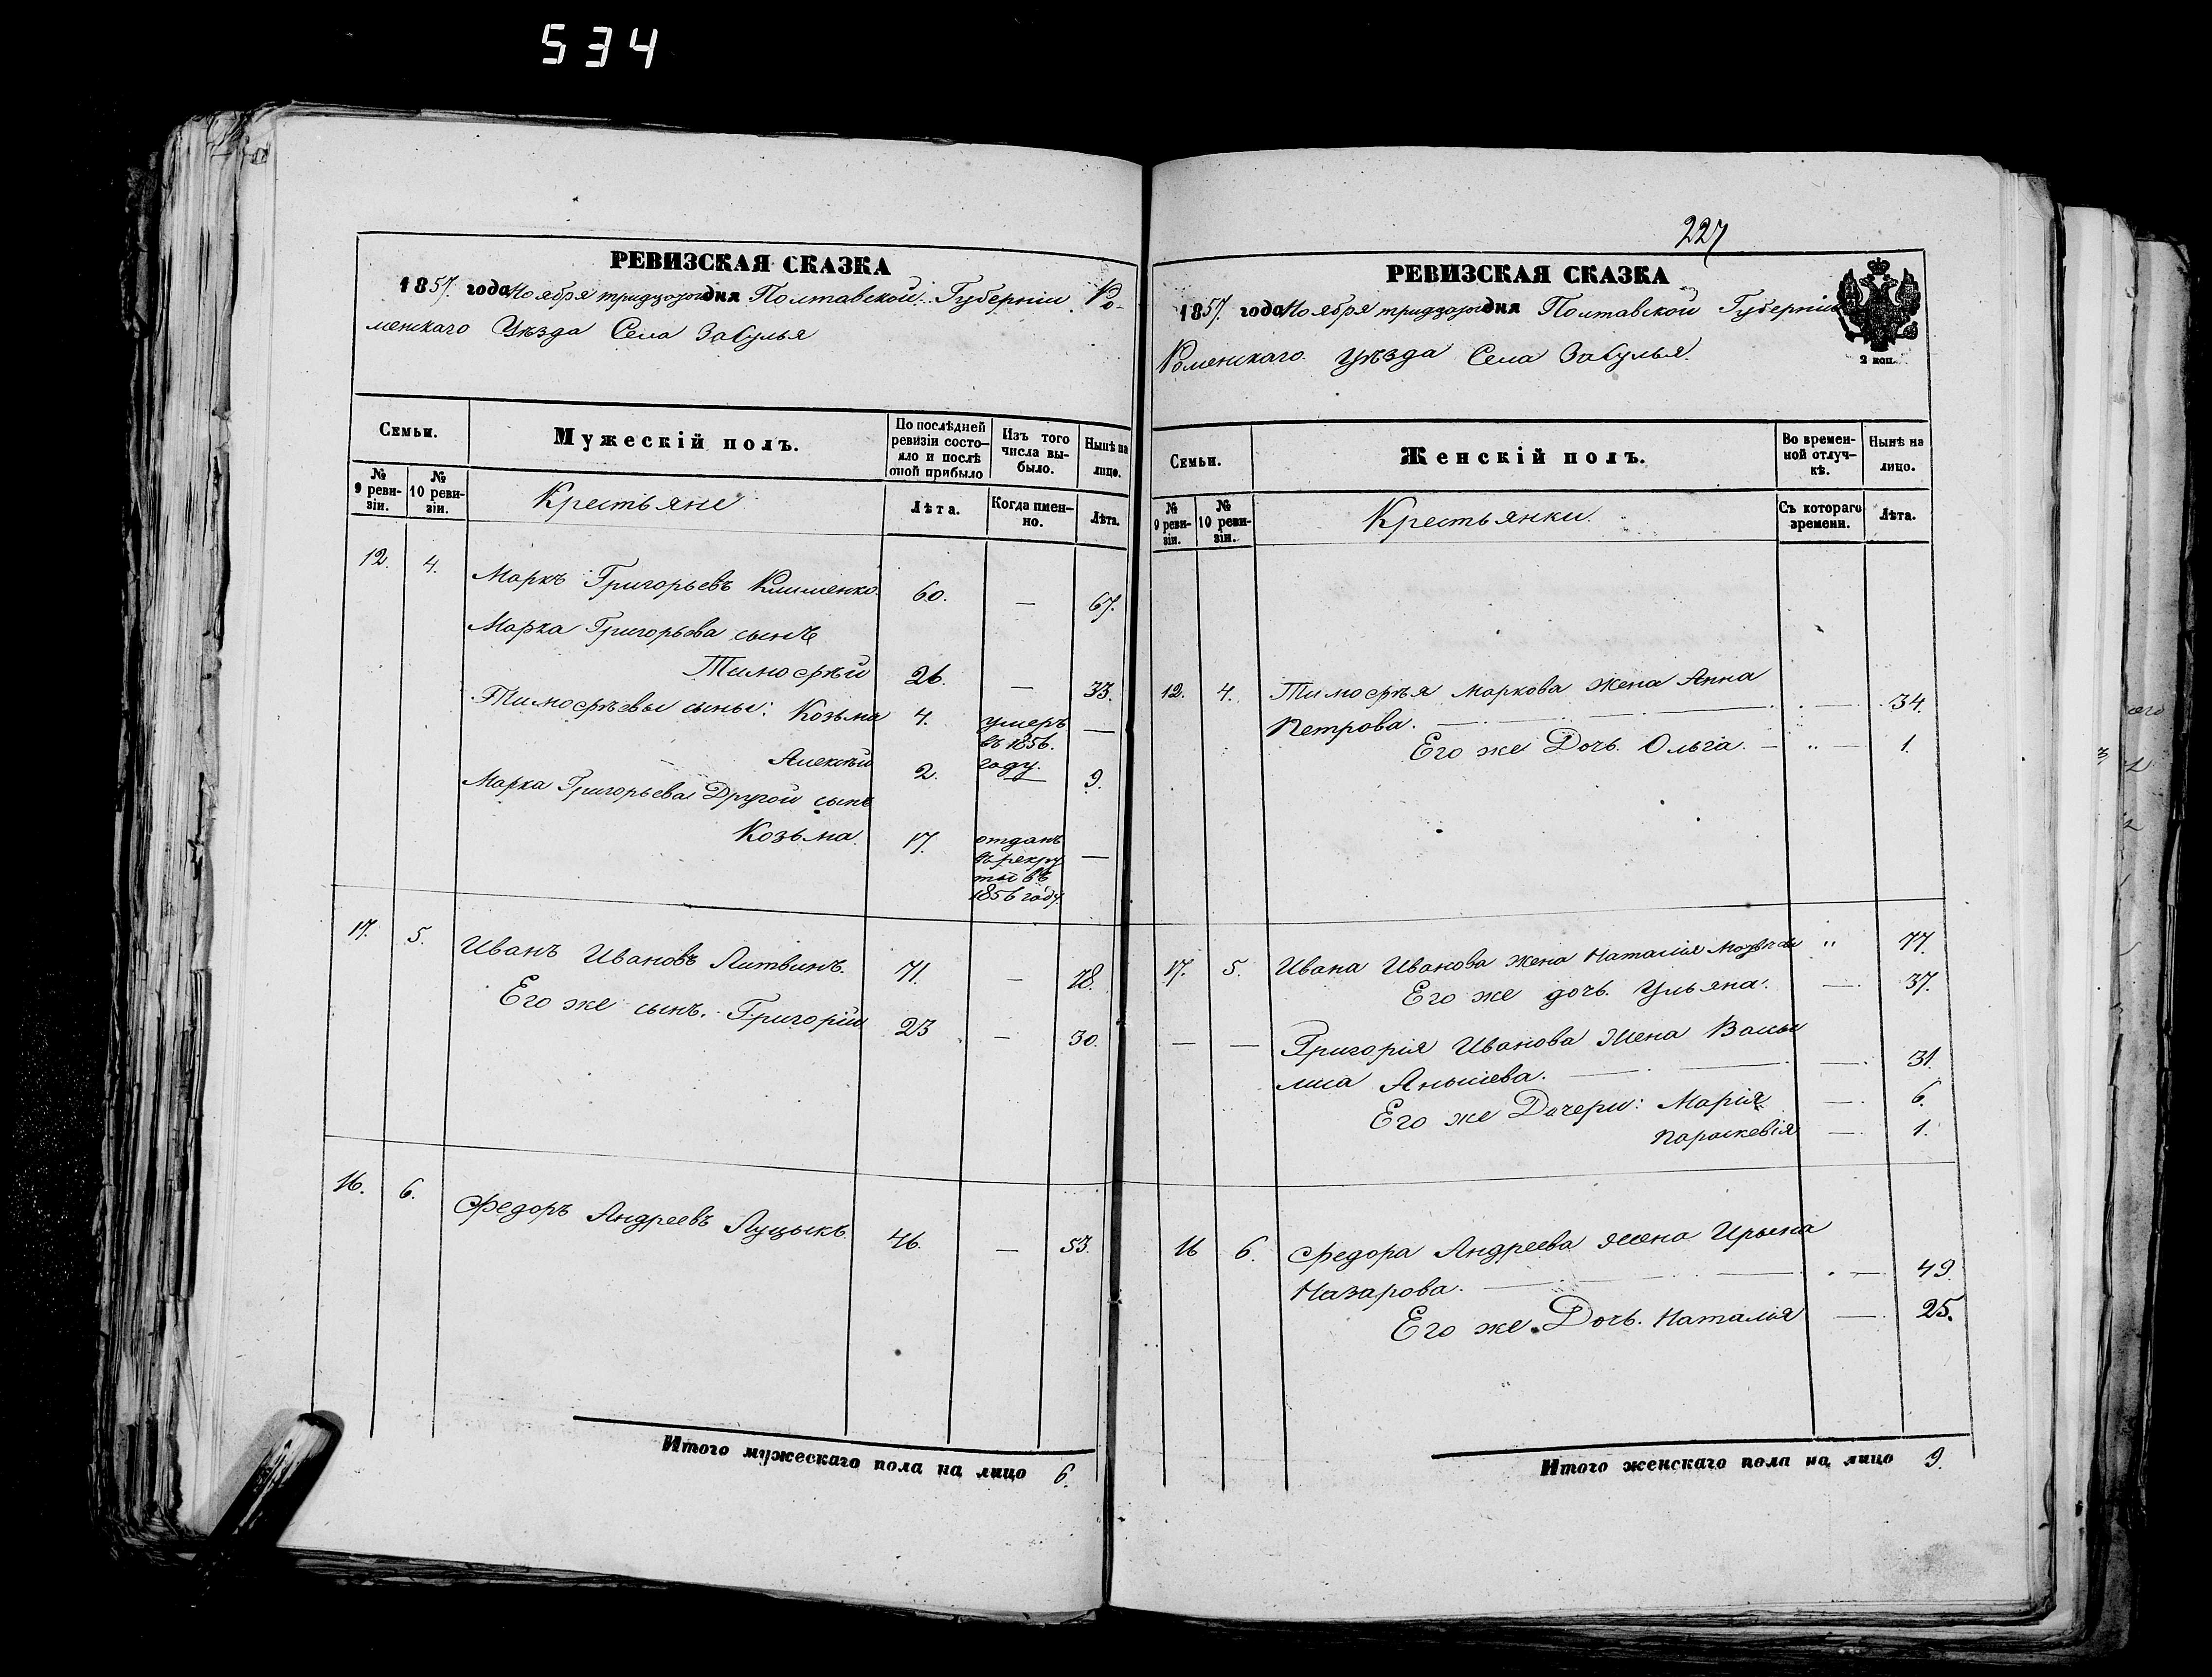 534
РЕВИЗСКАЯ СКАЗКА
1857. года Ноября тридцатого дня Полтавской Губерніи Ро-
менскаго Уѣзда Села Засулья
Семьи.
Мужескій полъ.
По послѣдней ревизіи состо-яло и послѣ оной прибыло
Изъ того числа вы-было.
Нынѣ на лицо.
№ 9 реви-зіи.
№ 10 реви-зіи.
Крестьяне
Лѣта.
Когда имен-но.
Лѣта.
12. 4. Маркъ Григорьевъ Клименко. 60. — 67.
Марка Григорьева сынъ
Тимофѣй 26. — 33.
Тимофѣевы сыны: Козьма 4. умеръ въ 1856. году. —
Алексѣй 2. — 9.
Марка Григорьева Другой сынъ
Козьма. 17. отданъ въ рекру ты въ 1856 году. —
17. 5. Иванъ Ивановъ Литвинъ. 71. — 78.
Его же сынъ. Григорій 23 — 30.
16. 6. Федоръ Андреевъ Луцыкъ. 46. — 53.
Итого мужескаго пола на лицо 6.
227
РЕВИЗСКАЯ СКАЗКА
1857. года Ноября тридцатого дня Полтавской Губерніи
Роменскаго. Уѣзда Села Засулья.
2 коп.
Семьи.
Женскій полъ.
Во времен-ной отлуч-кѣ.
Нынѣ на лицо.
№ 9 реви-зіи.
№ 10 реви-зіи.
Крестьянки.
Съ котораго времени.
Лѣта.
12. 4. Тимофѣя Маркова жена Анна
Петрова. — 34.
Его же Дочь. Ольга. — " — 1.
17. 5. Ивана Иванова жена Наталія " 77.
Его же дочь. Ульяна. — 37.
— — Григорія Иванова Жена Васи
лиса — 31.
Его же Дочери: Марія — 6.
Параскевія — 1.
16 6. Федора Андреева жена Ирына
Назарова. — 49.
Его же Дочь. Наталія — 25.
Итого женскаго пола на лицо 9.